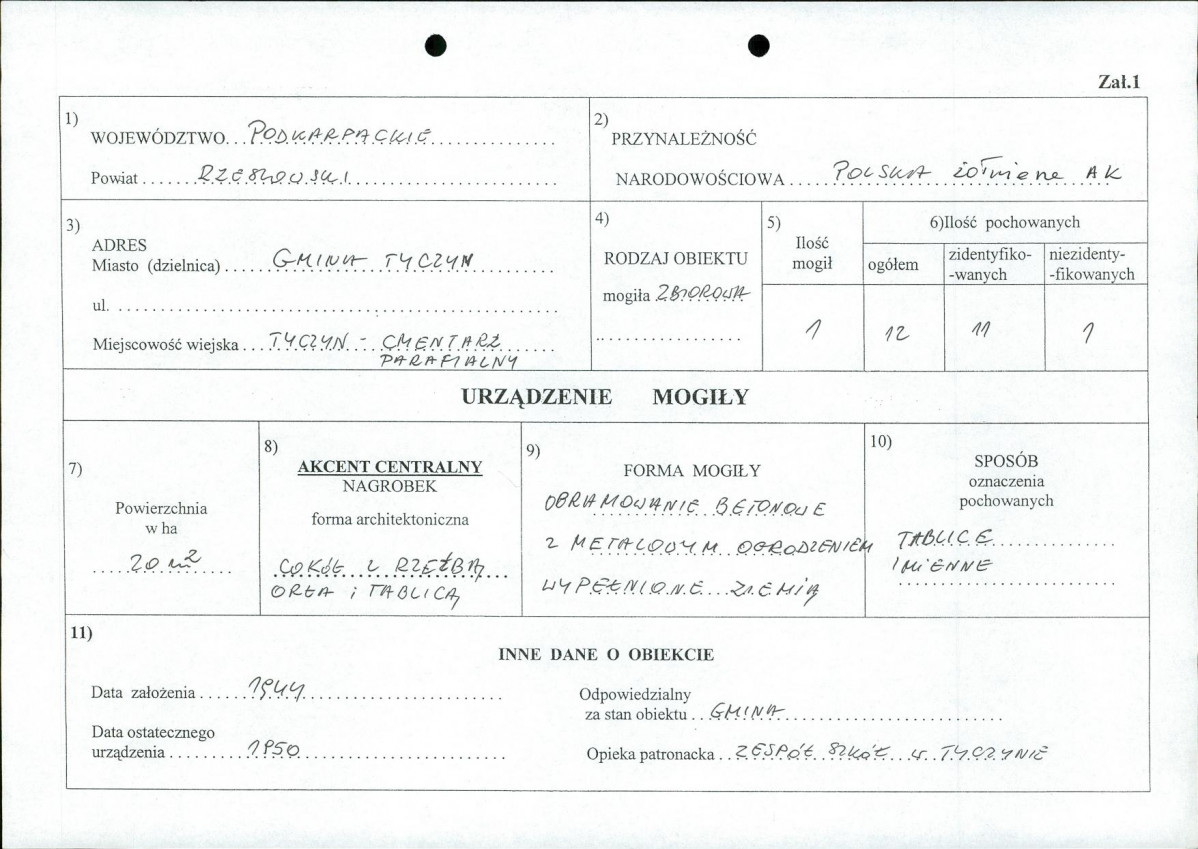 Zał.1
1)
WOJEWÓDZTWO... PODKARPACKIE
Powiat ...... RZESZOWSKI
2)
PRZYNALEŻNOŚĆ
NARODOWOŚCIOWA ..... POLSKA żołnierze AK
3)
ADRES
Miasto (dzielnica) ..... GMINA TYCZYN
ul. ......
Miejscowość wiejska ... TYCZYN - CMENTARZ
PARAFIALNY
4)
RODZAJ OBIEKTU
mogiła ZBIOROWA
5)
Ilość
mogił
1
6)Ilość pochowanych
ogółem
zidentyfiko-
-wanych
niezidenty-
-fikowanych
12 11 1
URZĄDZENIE MOGIŁY
7)
Powierzchnia
w ha
20 m2
8)
AKCENT CENTRALNY
NAGROBEK
forma architektoniczna
COKÓŁ Z RZEŹBĄ
ORŁA i TABLICĄ
9)
FORMA MOGIŁY
OBRAMOWANIE BETONOWE
Z METALOWYM OGRODZENIEM
WYPEŁNIONE ZIEMIĄ
10)
SPOSÓB
oznaczenia
pochowanych
TABLICE
IMIENNE
11)
INNE DANE O OBIEKCIE
Data założenia ..... 1944
Data ostatecznego
urządzenia ........ 1950
Odpowiedzialny
za stan obiektu .. GMINA
Opieka patronacka .. ZESPÓŁ SZKÓŁ w TYCZYNIE